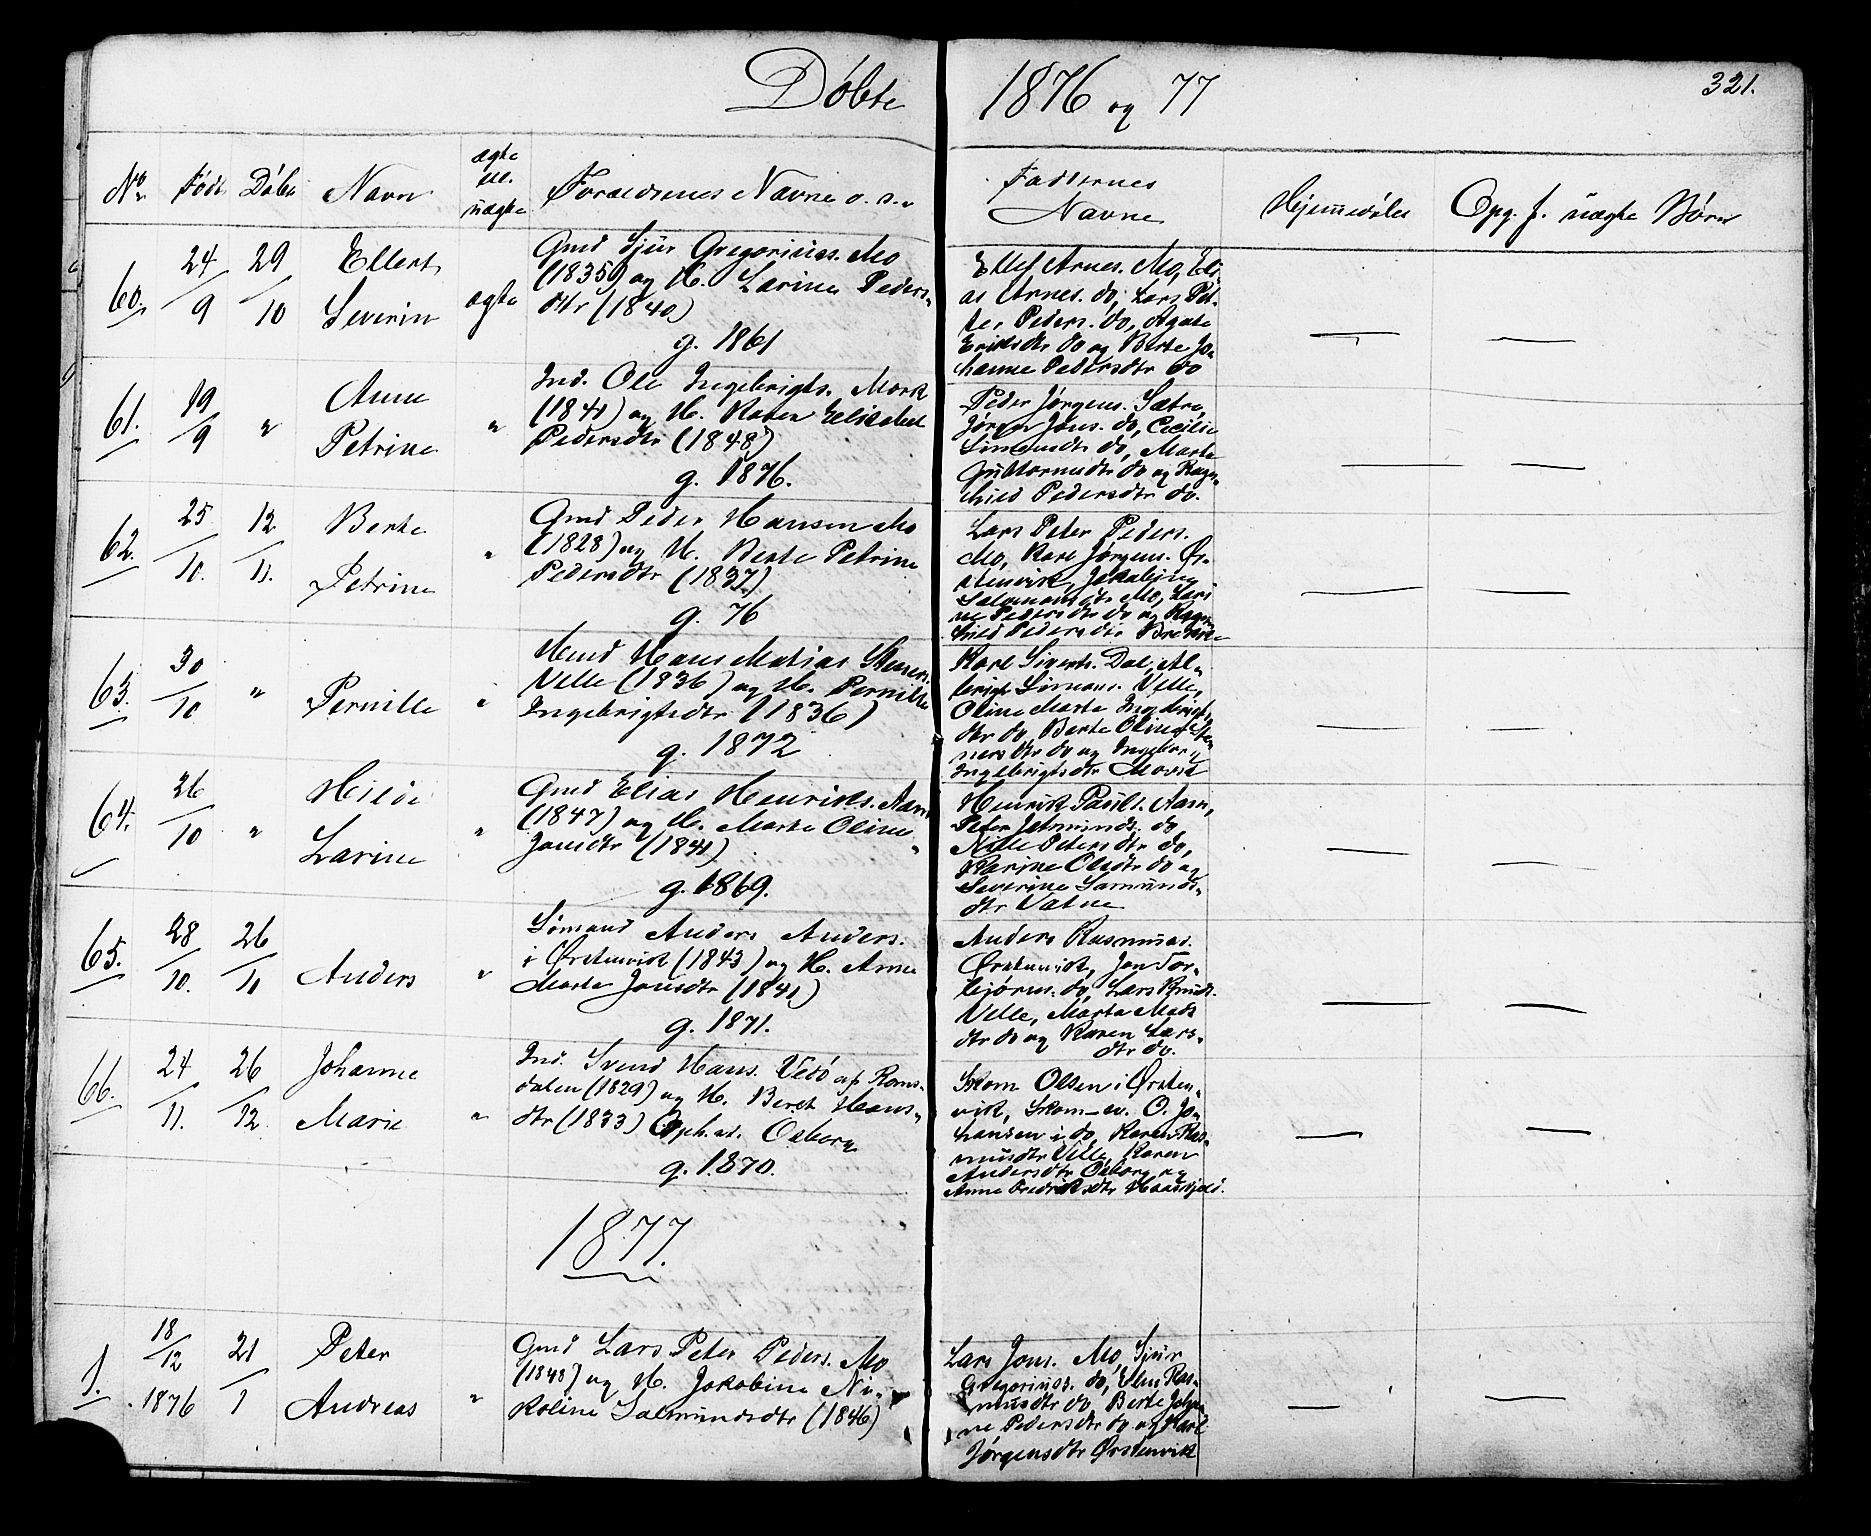 Döbte 1876 og 77
321.
No. Födt Döbt Navn ægte el. uægte Forældrenes Navne o. s. v.
Faddernes Navne Hjemmedöbt Opg. f. uægte Börn
60. 24/9 29/10 Ellert Severin ægte
Gmd Sjur Gregorius. Mo
(1835) og H. Larine Peders-
dtr (1840)
g. 1861
Ellef Arnes. Mo, Eli-
as Arnes. do, Lars Pet-
ter Peders. do, Agate
Eriksdtr do og Berte Jo-
hanne Pedersdtr do
61. 19/9 " Anne Petrine "
Ind. Ole Ingebrigts. Mork
(1841) og H. Karen Elisabet
Pedersdtr (1848)
g. 1876.
Peder Jörgens. Sætre,
Jörgen Jóns. do, Cecilie
Simensdtr do, Marte
Guttormsdtr do og Ragn-
hild Pedersdtr do.
62. 25/10. 12/11. Berte Petrine "
Gmd Peder Hansen Mo
(1828) og H. Berte Petrine
Pedersdtr (1837)
g. 76
Lars Peter Peders.
Mo, Karl Jörgens. Ör-
stenvik, Jakobine
Salamonsdtr Mo, Lari-
ne Pedersdtr do og Ragn-
hild Pedersdtr
63. 30/10 " Pernille "
Hmd Hans Matias Steners.
Velle (1836) og H. Pernille
Ingebrigtsdtr (1836)
g. 1872
Karl Siverts. Dal, Al-
brigt Simons. Velle,
Oline Marte Ingebrigts-
dtr do, Berte Oline Sten-
nersdtr do og Ingebor
Ingebrigtsdtr
64. 26/10 " Hilde Larine "
Gmd Elias Henriks. Aam
(1847) og H. Marte Oline
Jonsdtr (1841)
g. 1869.
Henrik Pauls. Aam,
Peter Jetmunds. do,
Nille Petersdtr do,
Karine Olsdtr do og
Severine Samunds-
dtr Vatne
65. 28/10. 26/11 Anders "
Sömand Anders Anders.
i Örstenvik (1843) og H. Anne
Marte Jonsdtr (1841)
g. 1871.
Anders Rasmus.
Örstenvik, Jon Tor-
björns. do, Lars Knuds.
Velle, Marta Mads
dtr do og Karen Lars-
dtr do.
66. 24/11. 26/12. Johanne Marie "
Ind. Svend Hans. Vedö af Roms-
dalen (1829) og H. Beret Hans-
dtr (1833) Oph. st. Osborg
g. 1870.
Skom Olsen i Örsten-
vik, Skom-sv. O. Jo-
hansen i do, Karen Ras-
musdtr Velle, Karen
Andersdtr Osborg og
Anne Fredriksdtr Haaskjold.
1877.
1. 18/12 1876 21/1 Peter Andreas "
Gmd Lars Peter Peders. Mo
(1848) og H. Jakobine Ni-
koline Salmundsdtr (1846)
Lars Jons. Mo, Sjur
Gregorius. do, Elen Ras-
musdtr do, Berte Johan-
ne Pedersdtr do og Karl
Jörgensdtr Örstenvik